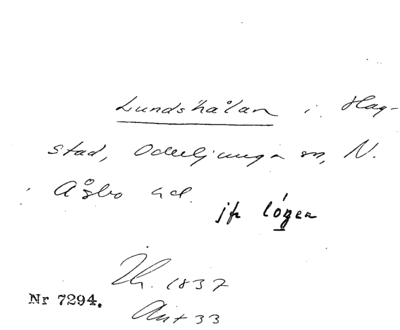 Lundshålan i Hag-
stad, Oderljunga sn, N.
Åsbo hd.
jfr lögen
1837
Nr 7294.
Ant 33